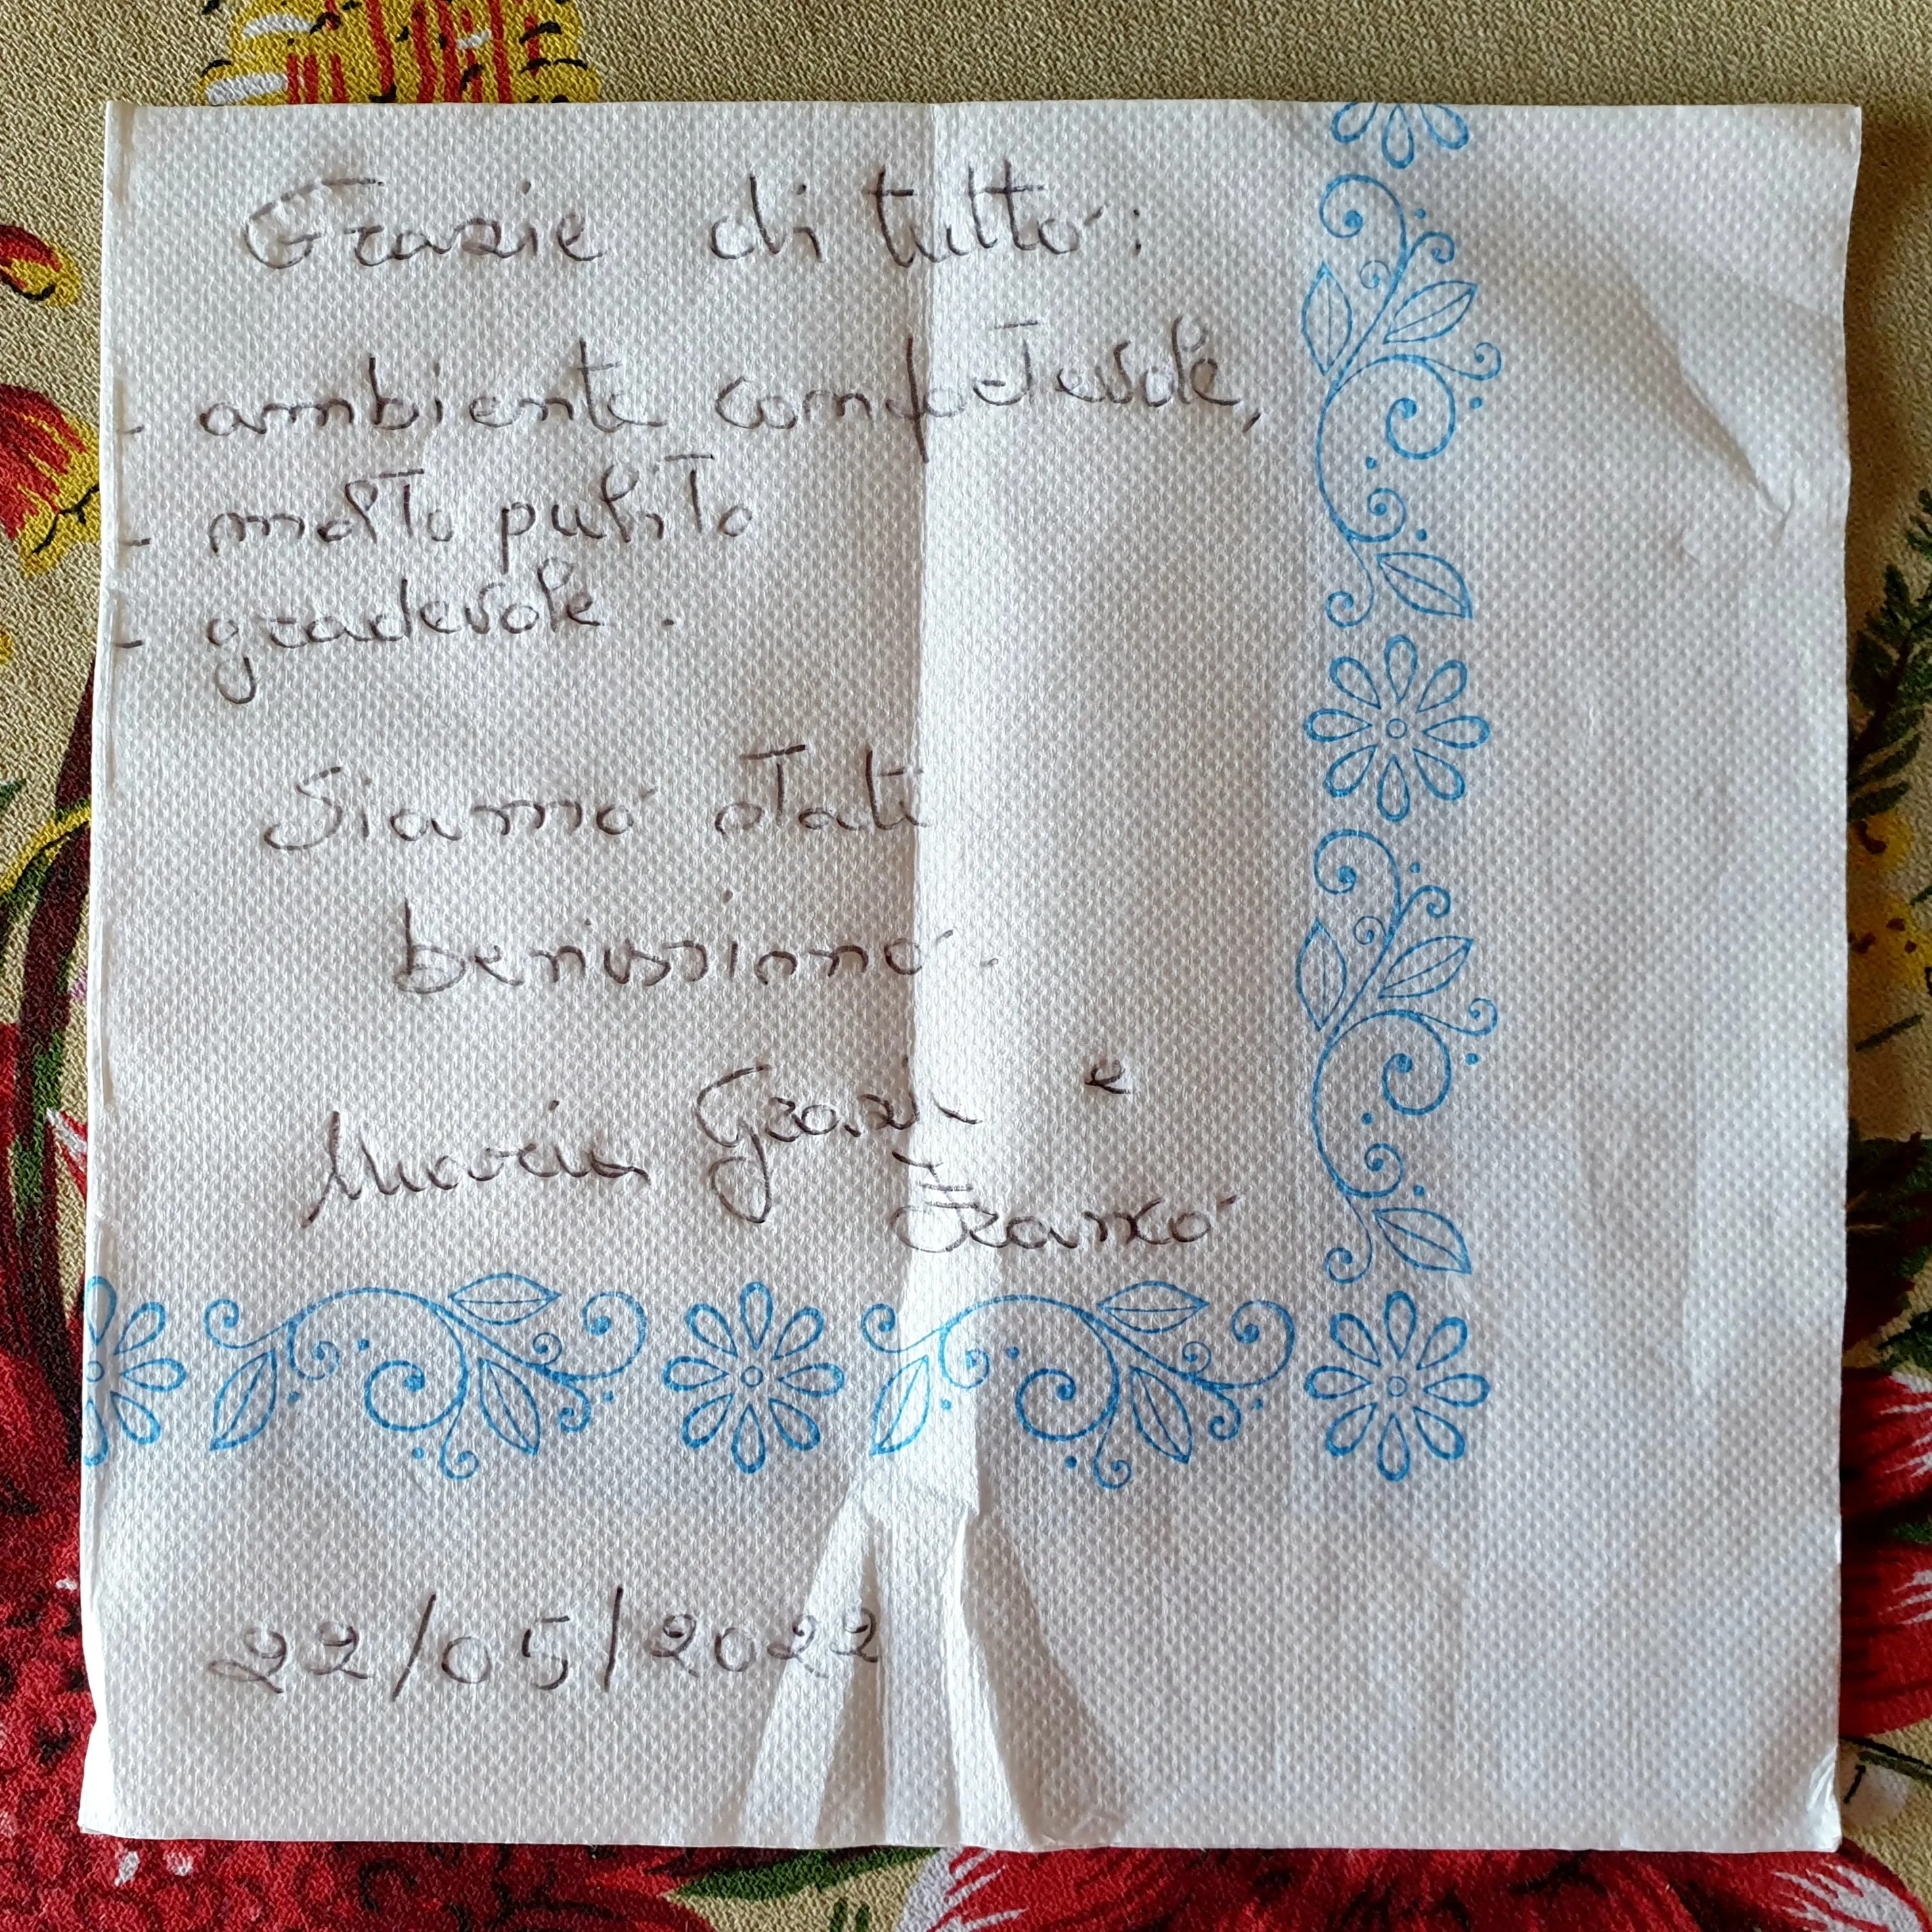 Grazie di tutto:
- ambiente confortevole,
- molto pulito
- gradevole.
Siamo stati
benissimo.
Maria Grazia e
Franco
22/05/2022